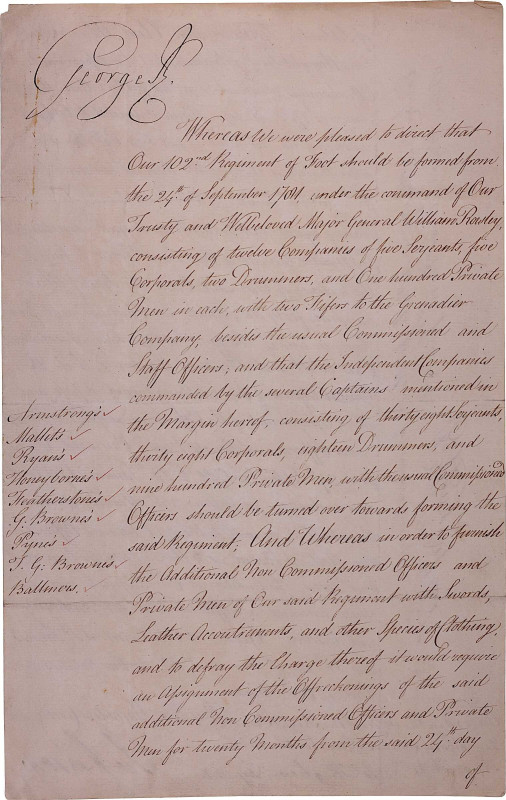 George R.
Whereas We were pleased to direct that
Our 102nd Regiment of Foot should be formed from
the 24th of September 1781 under the command of Our
Trusty and Welbeloved Major General William Rowley,
consisting of twelve Companies of five Serjeants, five
Corporals, two Drummers, and One hundred Private
Men in each, with two Fifers to the Grenadier
Company, besides the usual Commissioned and
Staff Officers; and that the Independent Companies
commanded by the several Captains mentioned in
the Margin hereof, consisting of thirty eight Serjeants,
thirty eight Corporals, eighteen Drummers, and
nine hundred Private Men, with the usual Commissioned
Officers should be turned over towards forming the
said Regiment; And Whereas in order to furnish
the Additional Non Commissioned Officers and
Private Men of Our said Regiment with Swords,
Leather Accoutrements, and other Species of Clothing,
and to defray the Charge thereof it would require
an Assignment of the Offreckonings of the said
additional Non Commissioned Officers and Private
Men for twenty Months from the said 24th day
of
Armstrong's
Mallet's
Ryan's
Honeyborne's
Featherstone's
G. Browne's
Pyne's
T. G. Browne's
Baltimores.